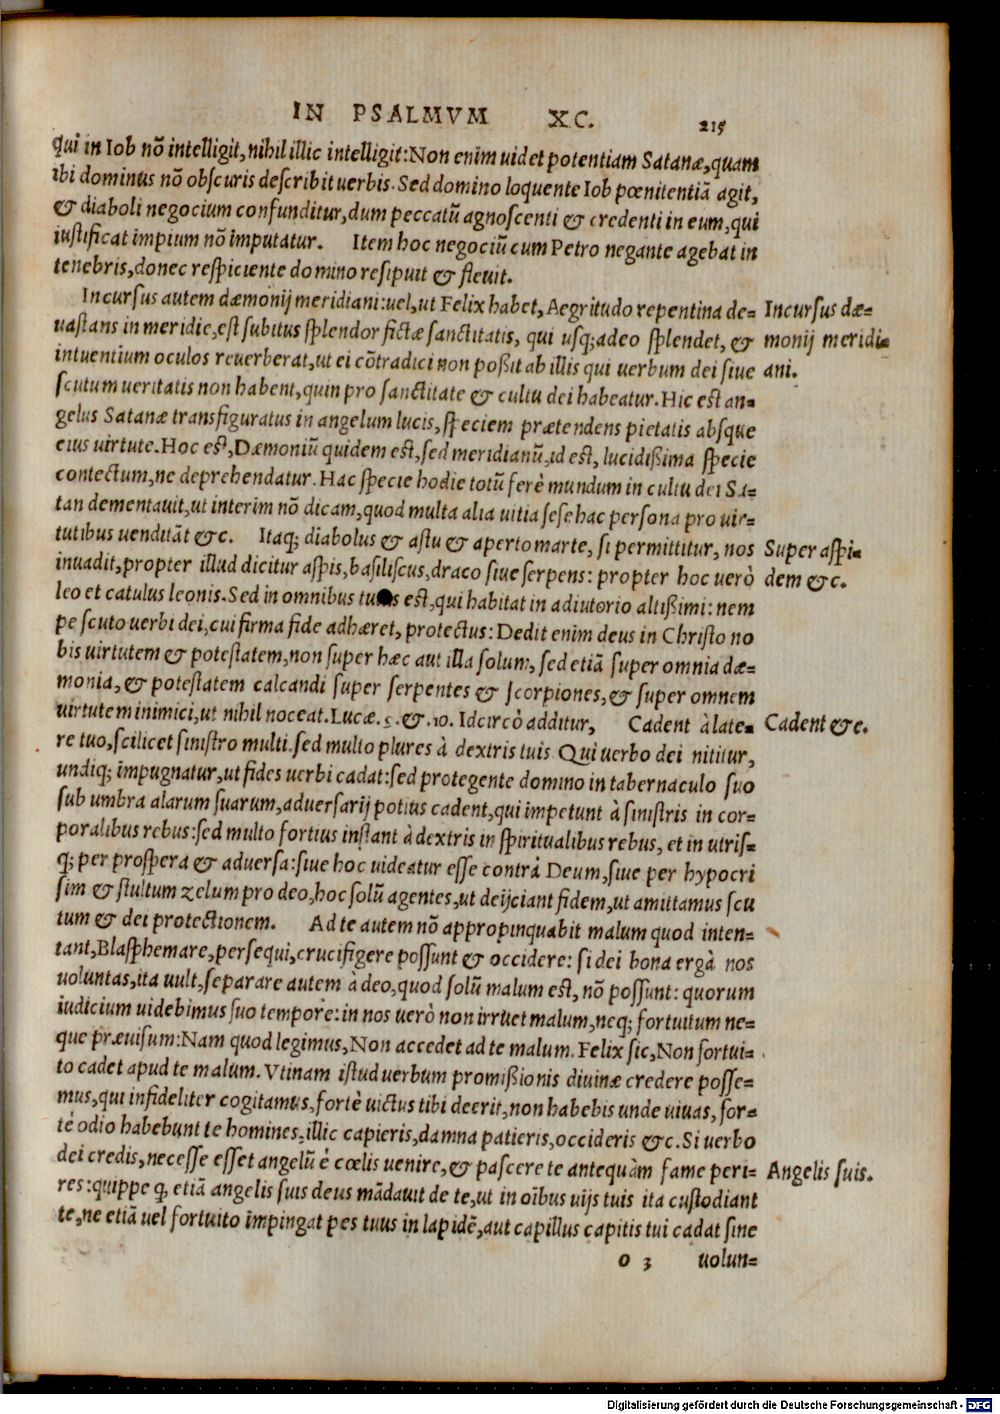 IN PSALMVM XC. 215
qui in Iob nõ intelligit, nihil illic intelligit: Non enim uidet potentiam Satanæ, quam
ibi dominus nõ obscuris describit uerbis. Sed domino loquente Iob pœnitentiã agit,
& diaboli negocium confunditur, dum peccatũ agnoscenti & credenti in eum, qui
iustificat impium nõ imputatur. Item hoc negociũ cum Petro negante agebat in
tenebris, donec respiciente domino resipuit & fleuit.
Incursus autem dæmonij meridiani: uel, ut Felix habet, Aegritudo repentina de= Incursus dæ=
uastans in meridie, est subitus splendor fictæ sanctitatis, qui usq; adeo splendet, & monij meridi=
intuentium oculos reuerberat, ut ei cõtradici non poßit ab illis qui uerbum dei siue ani.
scutum ueritatis non habent, quin pro sanctitate & cultu dei habeatur. Hic est an=
gelus Satanæ transfiguratus in angelum lucis, speciem prætendens pietatis absque
eius uirtute. Hoc est, Dæmoniũ quidem est, sed meridianũ, id est, lucidißima specie
contectum, ne deprehendatur. Hac specie hodie totũ ferè mundum in cultu dei Sa=
tan dementauit, ut interim nõ dicam, quod multa alia uitia sese hac persona pro uir=
tutibus uenditãt &c. Itaq; diabolus & astu & aperto marte, si permittitur, nos Super aspi=
inuadit, propter illud dicitur aspis, basiliscus, draco siue serpens: propter hoc uerò dem &c.
leo et catulus leonis. Sed in omnibus tutus est, qui habitat in adiutorio altißimi: nem
pe scuto uerbi dei, cui firma fide adhæret, protectus: Dedit enim deus in Christo no
bis uirtutem & potestatem, non super hæc aut illa solum, sed etiã super omnia dæ=
monia, & potestatem calcandi super serpentes & scorpiones, & super omnem
uirtutem inimici, ut nihil noceat. Lucæ. 9. &. 10. Idcircò additur, Cadent à late= Cadent &c.
re tuo, scilicet sinistro multi. sed multo plures à dextris tuis Qui uerbo dei nititur,
undiq; impugnatur, ut fides uerbi cadat: sed protegente domino in tabernaculo suo
sub umbra alarum suarum, aduersarij potius cadent, qui impetunt à sinistris in cor=
poralibus rebus: sed multo fortius instant à dextris in spiritualibus rebus, et in utris=
q; per prospera & aduersa: siue hoc uideatur esse contrà Deum, siue per hypocri
sim & stultum zelum pro deo, hoc solũ agentes, ut deijciant fidem, ut amittamus scu
tum & dei protectionem. Ad te autem nõ appropinquabit malum quod inten=
tant, Blasphemare, persequi, crucifigere possunt & occidere: si dei bona ergà nos
uoluntas, ita uult, separare autem à deo, quod solũ malum est, nõ possunt: quorum
iudicium uidebimus suo tempore: in nos uerò non irruet malum, neq; fortuitum ne=
que præuisum: Nam quod legimus, Non accedet ad te malum. Felix sic, Non fortui=
to cadet apud te malum. Vtinam istud uerbum promißionis diuinæ credere posse=
mus, qui infideliter cogitamus, fortè uictus tibi deerit, non habebis unde uiuas, for=
tè odio habebunt te homines, illic capieris, damna patieris, occideris &c. Si uerbo
dei credis, necesse esset angelũ è cœlis uenire, & pascere te antequàm fame peri= Angelis suis.
res: quippe q; etiã angelis suis deus mãdauit de te, ut in oĩbus uijs tuis ita custodiant
te, ne etiã uel fortuito impingat pes tuus in lapidẽ, aut capillus capitis tui cadat sine
o 3 uolun=
Digitalisierung gefördert durch die Deutsche Forschungsgemeinschaft - DFG